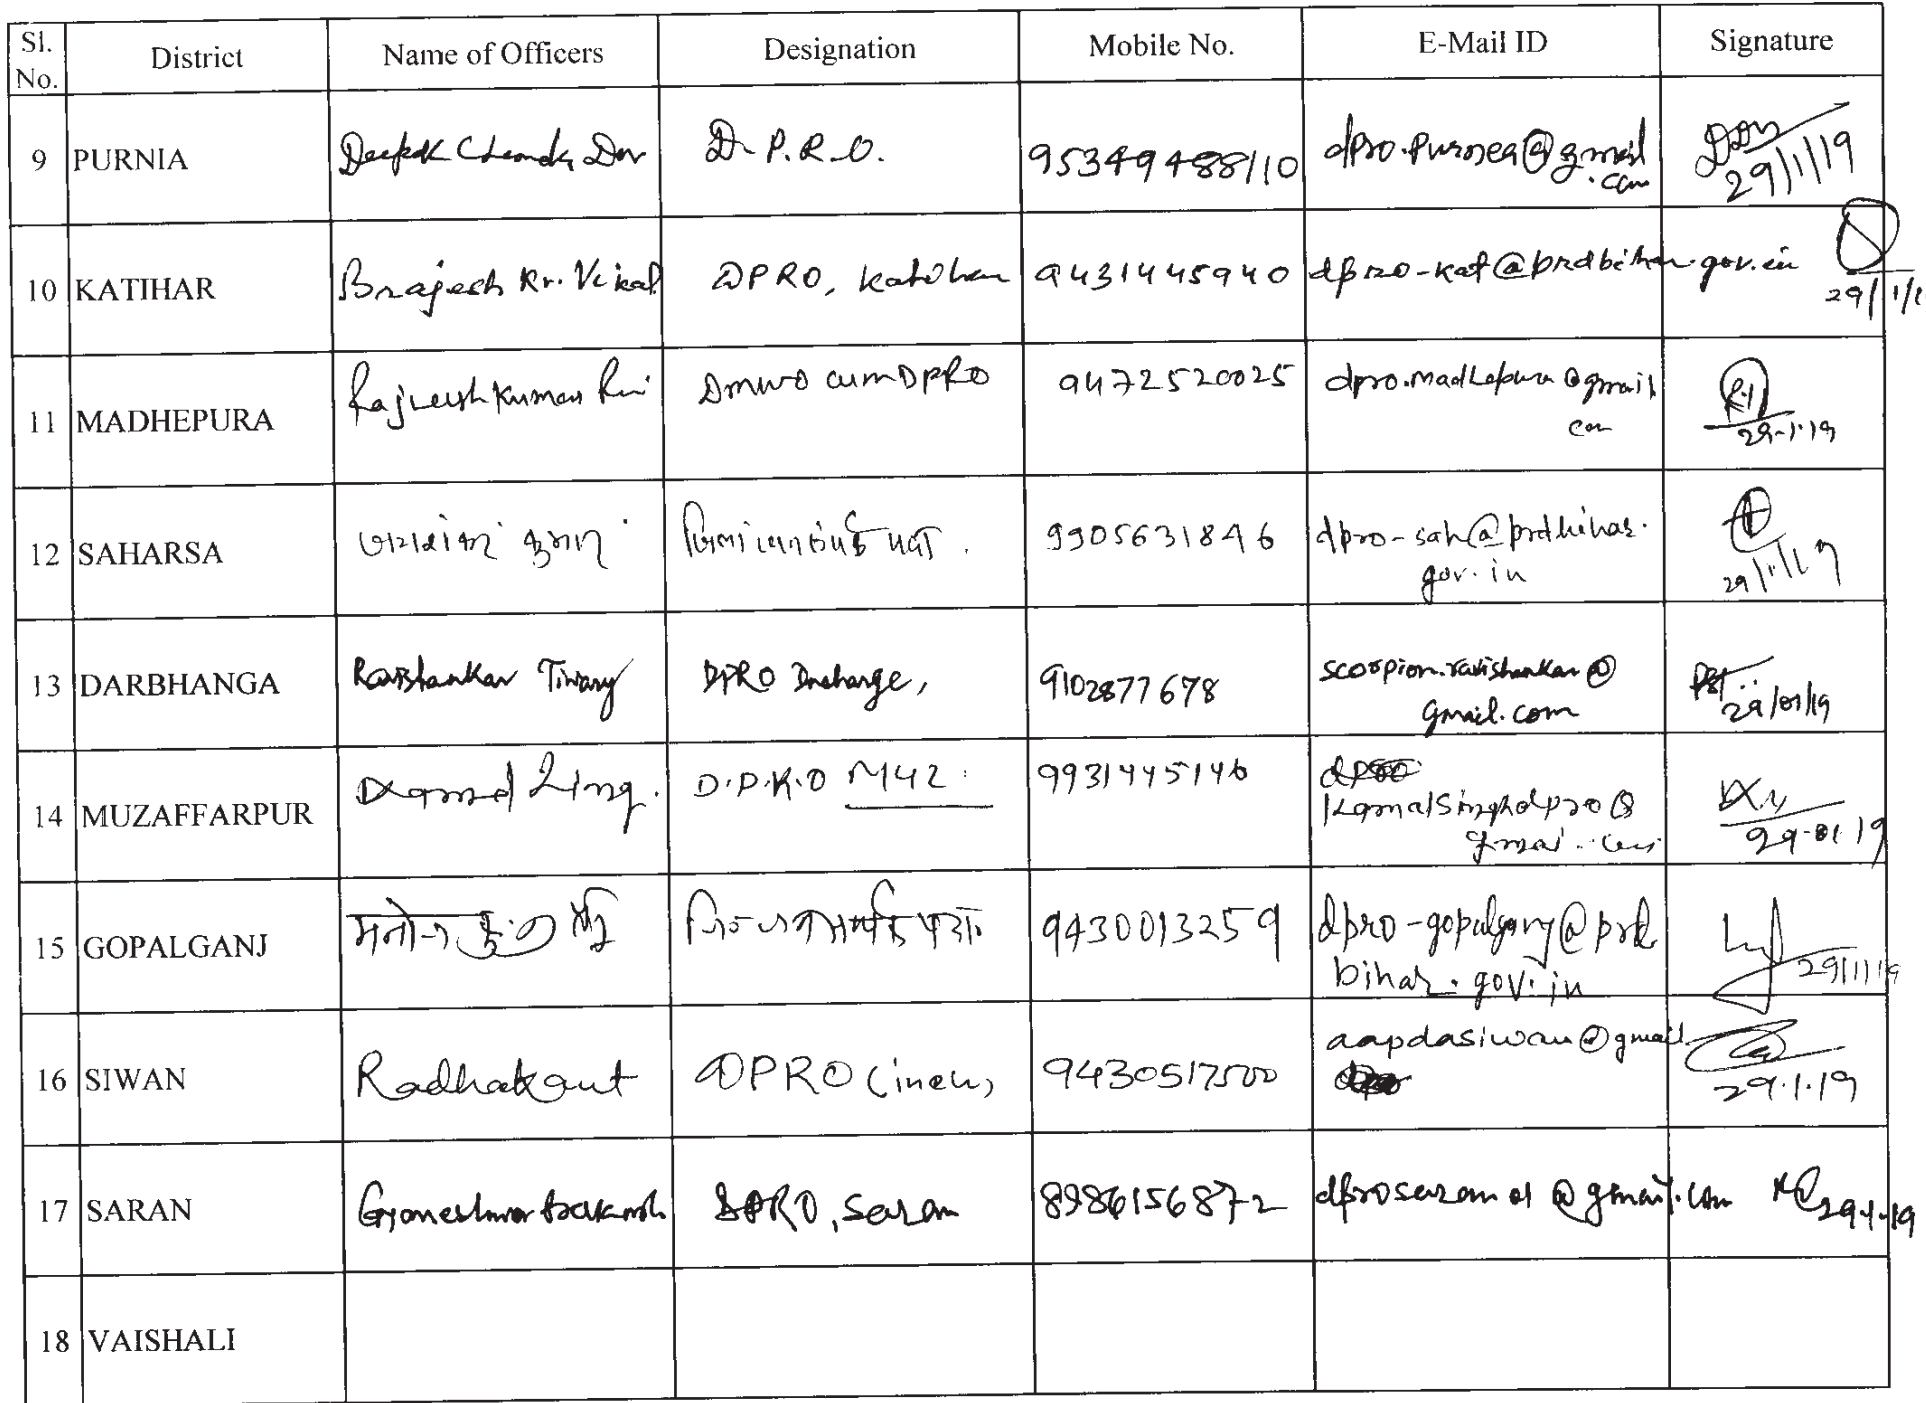 Sl. No. District Name of Officers Designation Mobile No. E-Mail ID Signature
9 PURNIA Deepak Chandra Dev D.P.R.O. dpro.purnea@gmail.com 29/1/19
10 KATIHAR Brajesh Kr. Vikal DPRO, Katihar 9431445940 dpro-kat@prdbihar.gov.in 29/1/1
11 MADHEPURA Kumar DMWO cum DPRO 9472520025 dpro.madhepura@gmail.com 29-1-19
12 SAHARSA कुमार 9905631846 dpro-sah@prdbihar.gov.in 29/1/19
13 DARBHANGA Ravishankar Tiwary DPRO Incharge, 9102877678 scorpion.ravishankar@gmail.com 29/01/19
14 MUZAFFARPUR Kamal Sing. D.P.R.O 9931445146 Kamalsinghdpro@ 29-01-19
15 GOPALGANJ 9430013259 dpro-gopalganj@prdbihar.gov.in 29/1/19
16 SIWAN Radhakant DPRO 9430517500 aapdasiwan@gmail 29.1.19
17 SARAN Gyaneshwar Prakash DPRO, Saran 8986156872 dprosaran01@gmail.com 29.1.19
18 VAISHALI